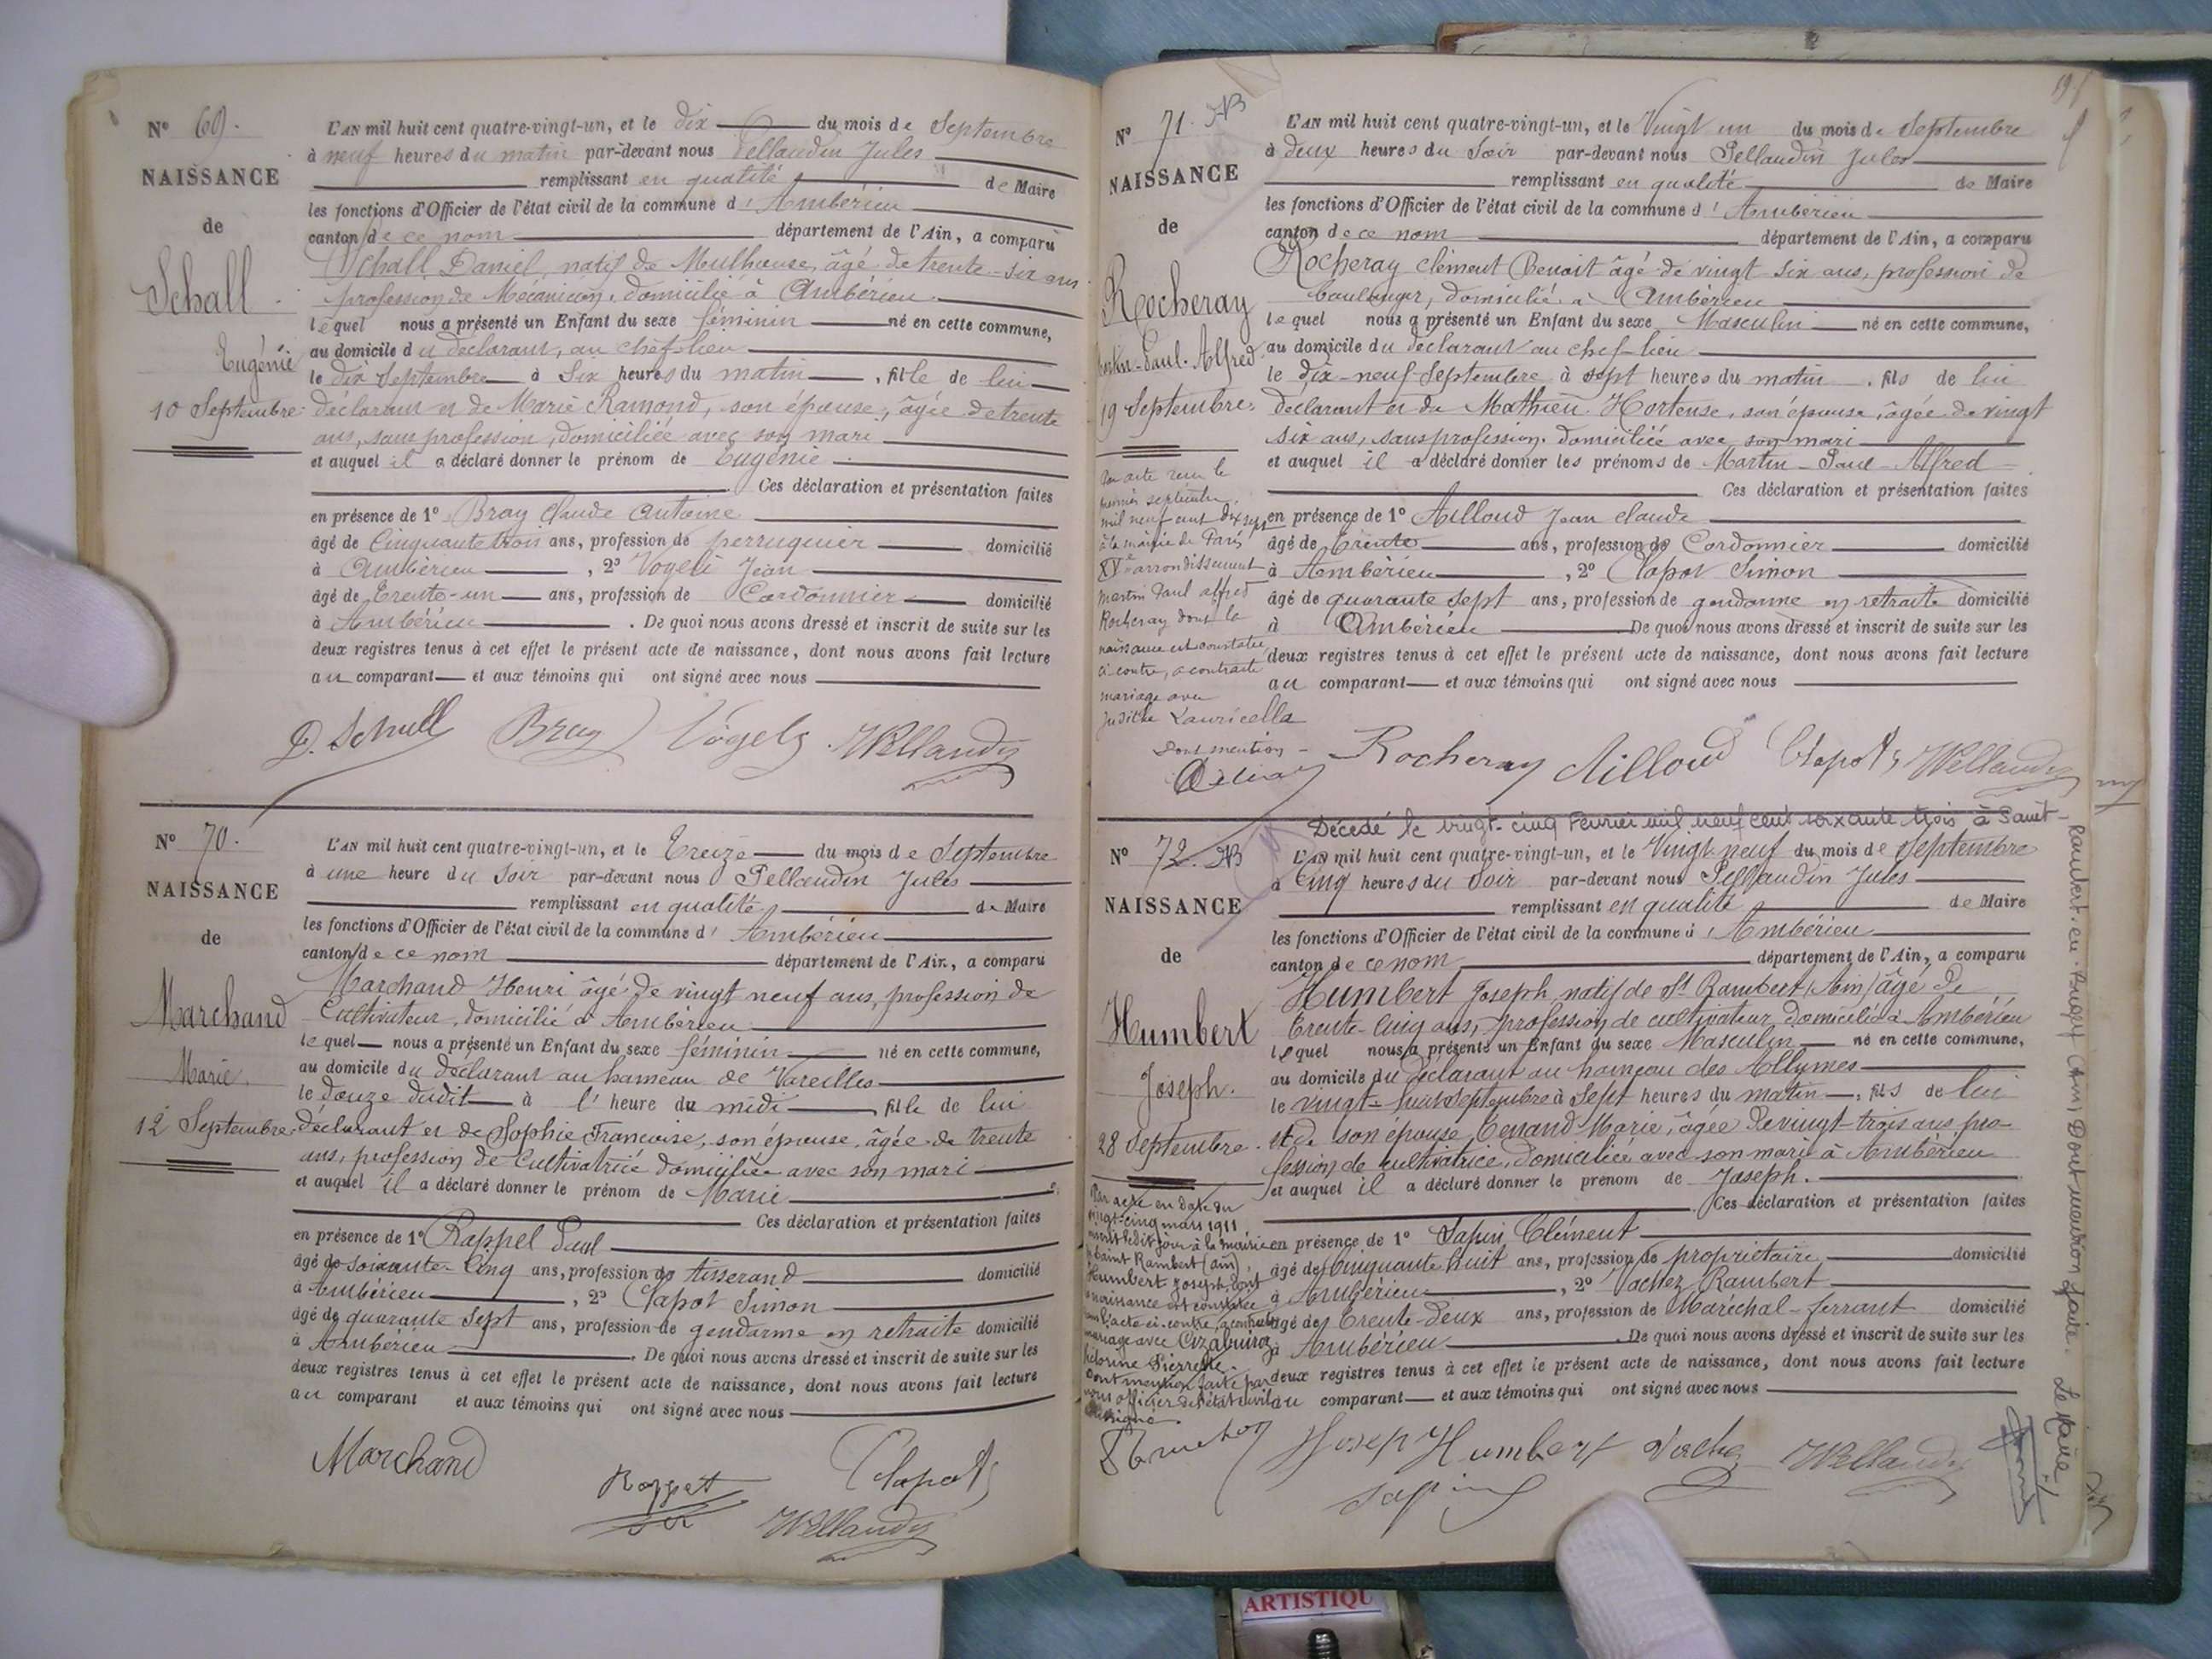 Nº 69.
NAISSANCE
de
Schall
Eugénie
10 Septembre
L'AN mil huit cent quatre-vingt-un, et le dix du mois de Septembre
à neuf heures du matin par-devant nous Pellaudin Jules
remplissant en qualité de Maire
les fonctions d'Officier de l'état civil de la commune d' Ambérieu
canton de ce nom département de l'Ain, a comparu
Schall Daniel, natif de Mulhouse, âgé de trente-six ans
profession de Mécanicien, domicilié à Ambérieu
lequel nous a présenté un Enfant du sexe féminin né en cette commune,
au domicile du déclarant, au chef-lieu
le dix Septembre à Six heures du matin, fille de lui
déclarant et de Marie Ramond, son épouse, âgée de trente
ans, sans profession, domiciliée avec son mari
et auquel il a déclaré donner le prénom de Eugénie
Ces déclaration et présentation faites
en présence de 1º Bray Claude Antoine
âgé de Cinquante trois ans, profession de perruquier domicilié
à Ambérieu, 2º Vogeli Jean
âgé de Trente-un ans, profession de Cordonnier domicilié
à Ambérieu. De quoi nous avons dressé et inscrit de suite sur les
deux registres tenus à cet effet le présent acte de naissance, dont nous avons fait lecture
au comparant et aux témoins qui ont signé avec nous
D. Schall Bray
Nº 70.
NAISSANCE
de
Marchand
Marie.
12 Septembre
L'AN mil huit cent quatre-vingt-un, et le Treize du mois de Septembre
à une heure du Soir par-devant nous Pellaudin Jules
remplissant en qualité de Maire
les fonctions d'Officier de l'état civil de la commune d' Ambérieu
canton de ce nom département de l'Ain, a comparu
Marchand Henri âgé de vingt neuf ans, profession de
Cultivateur, domicilié à Ambérieu
lequel nous a présenté un Enfant du sexe féminin né en cette commune,
au domicile du déclarant au hameau de Vareilles
le douze dudit à l' heure de midi, fille de lui
déclarant et de Sophie Françoise, son épouse, âgée de trente
ans, profession de Cultivatrice domiciliée avec son mari
et auquel il a déclaré donner le prénom de Marie
Ces déclaration et présentation faites
en présence de 1º Rappet Paul
âgé de soixante-Cinq ans, profession de tisserand domicilié
à Ambérieu, 2º Clapot Simon
âgé de quarante Sept ans, profession de gendarme en retraite domicilié
à Ambérieu. De quoi nous avons dressé et inscrit de suite sur les
deux registres tenus à cet effet le présent acte de naissance, dont nous avons fait lecture
au comparant et aux témoins qui ont signé avec nous
Marchand Rappet Clapot
Nº 71. NB
NAISSANCE
de
Rocheray
Martin-Paul-Alfred
19 Septembre
L'AN mil huit cent quatre-vingt-un, et le Vingt un du mois de Septembre
à deux heures du Soir par-devant nous Pellaudin Jules
remplissant en qualité de Maire
les fonctions d'Officier de l'état civil de la commune d' Ambérieu
canton de ce nom département de l'Ain, a comparu
Rocheray Clément Benoit âgé de vingt six ans, profession de
boulanger, domicilié à Ambérieu
lequel nous a présenté un Enfant du sexe Masculin né en cette commune,
au domicile du déclarant au chef-lieu
le dix-neuf Septembre à sept heures du matin, fils de lui
déclarant et de Mathieu Hortense, son épouse, âgée de vingt
six ans, sans profession, domiciliée avec son mari
et auquel il a déclaré donner les prénoms de Martin-Paul-Alfred
Ces déclaration et présentation faites
en présence de 1º Ailloud Jean Claude
âgé de Trente ans, profession de Cordonnier domicilié
à Ambérieu, 2º Clapot Simon
âgé de quarante sept ans, profession de gendarme en retraite domicilié
à Ambérieu De quoi nous avons dressé et inscrit de suite sur les
deux registres tenus à cet effet le présent acte de naissance, dont nous avons fait lecture
au comparant et aux témoins qui ont signé avec nous
Rocheray Ailloud Clapot
Par acte reçu le
premier septembre
mil neuf cent dix sept
à la mairie de Paris
XVe arrondissement
Martin Paul Alfred
Rocheray dont la
naissance est constatée
ci-contre, a contracté
mariage avec
Judith Lauricella
Dont mention
Nº 72. NB
NAISSANCE
de
Humbert
Joseph.
28 Septembre.
Décédé le vingt-cinq Février mil neuf cent soixante trois à Saint-
Rambert-en-Bugey (Ain) Dont mention faite. Le Maire,
L'AN mil huit cent quatre-vingt-un, et le Vingt neuf du mois de Septembre
à Cinq heures du Soir par-devant nous Pellaudin Jules
remplissant en qualité de Maire
les fonctions d'Officier de l'état civil de la commune d' Ambérieu
canton de ce nom département de l'Ain, a comparu
Humbert Joseph natif de St Rambert (Ain) âgé de
Trente-Cinq ans, profession de cultivateur domicilié à Ambérieu
lequel nous a présenté un Enfant du sexe Masculin né en cette commune,
au domicile du Déclarant au hameau des Allymes
le vingt-huit Septembre à Sept heures du matin, fils de lui
et de son épouse Tenand Marie, âgée de vingt-trois ans pro-
fession de cultivatrice, domiciliée avec son mari à Ambérieu
et auquel il a déclaré donner le prénom de Joseph.
Ces déclaration et présentation faites
en présence de 1º Sapin Clément
âgé de Cinquante huit ans, profession de propriétaire domicilié
à Ambérieu, 2º Vachez Rambert
âgé de Trente-deux ans, profession de Maréchal-ferrant domicilié
à Ambérieu. De quoi nous avons dressé et inscrit de suite sur les
deux registres tenus à cet effet le présent acte de naissance, dont nous avons fait lecture
au comparant et aux témoins qui ont signé avec nous
Par acte en date du
vingt-cinq mars 1911
inscrit ledit jour à la mairie
de Saint Rambert (Ain),
Humbert Joseph, dont
la naissance est constatée
dans l'acte ci-contre, a contracté
mariage avec
Pierrette.
Dont mention faite par
nous officier de l'état civil
soussigné.
Josep Humbert
Sapin
ARTISTIQU